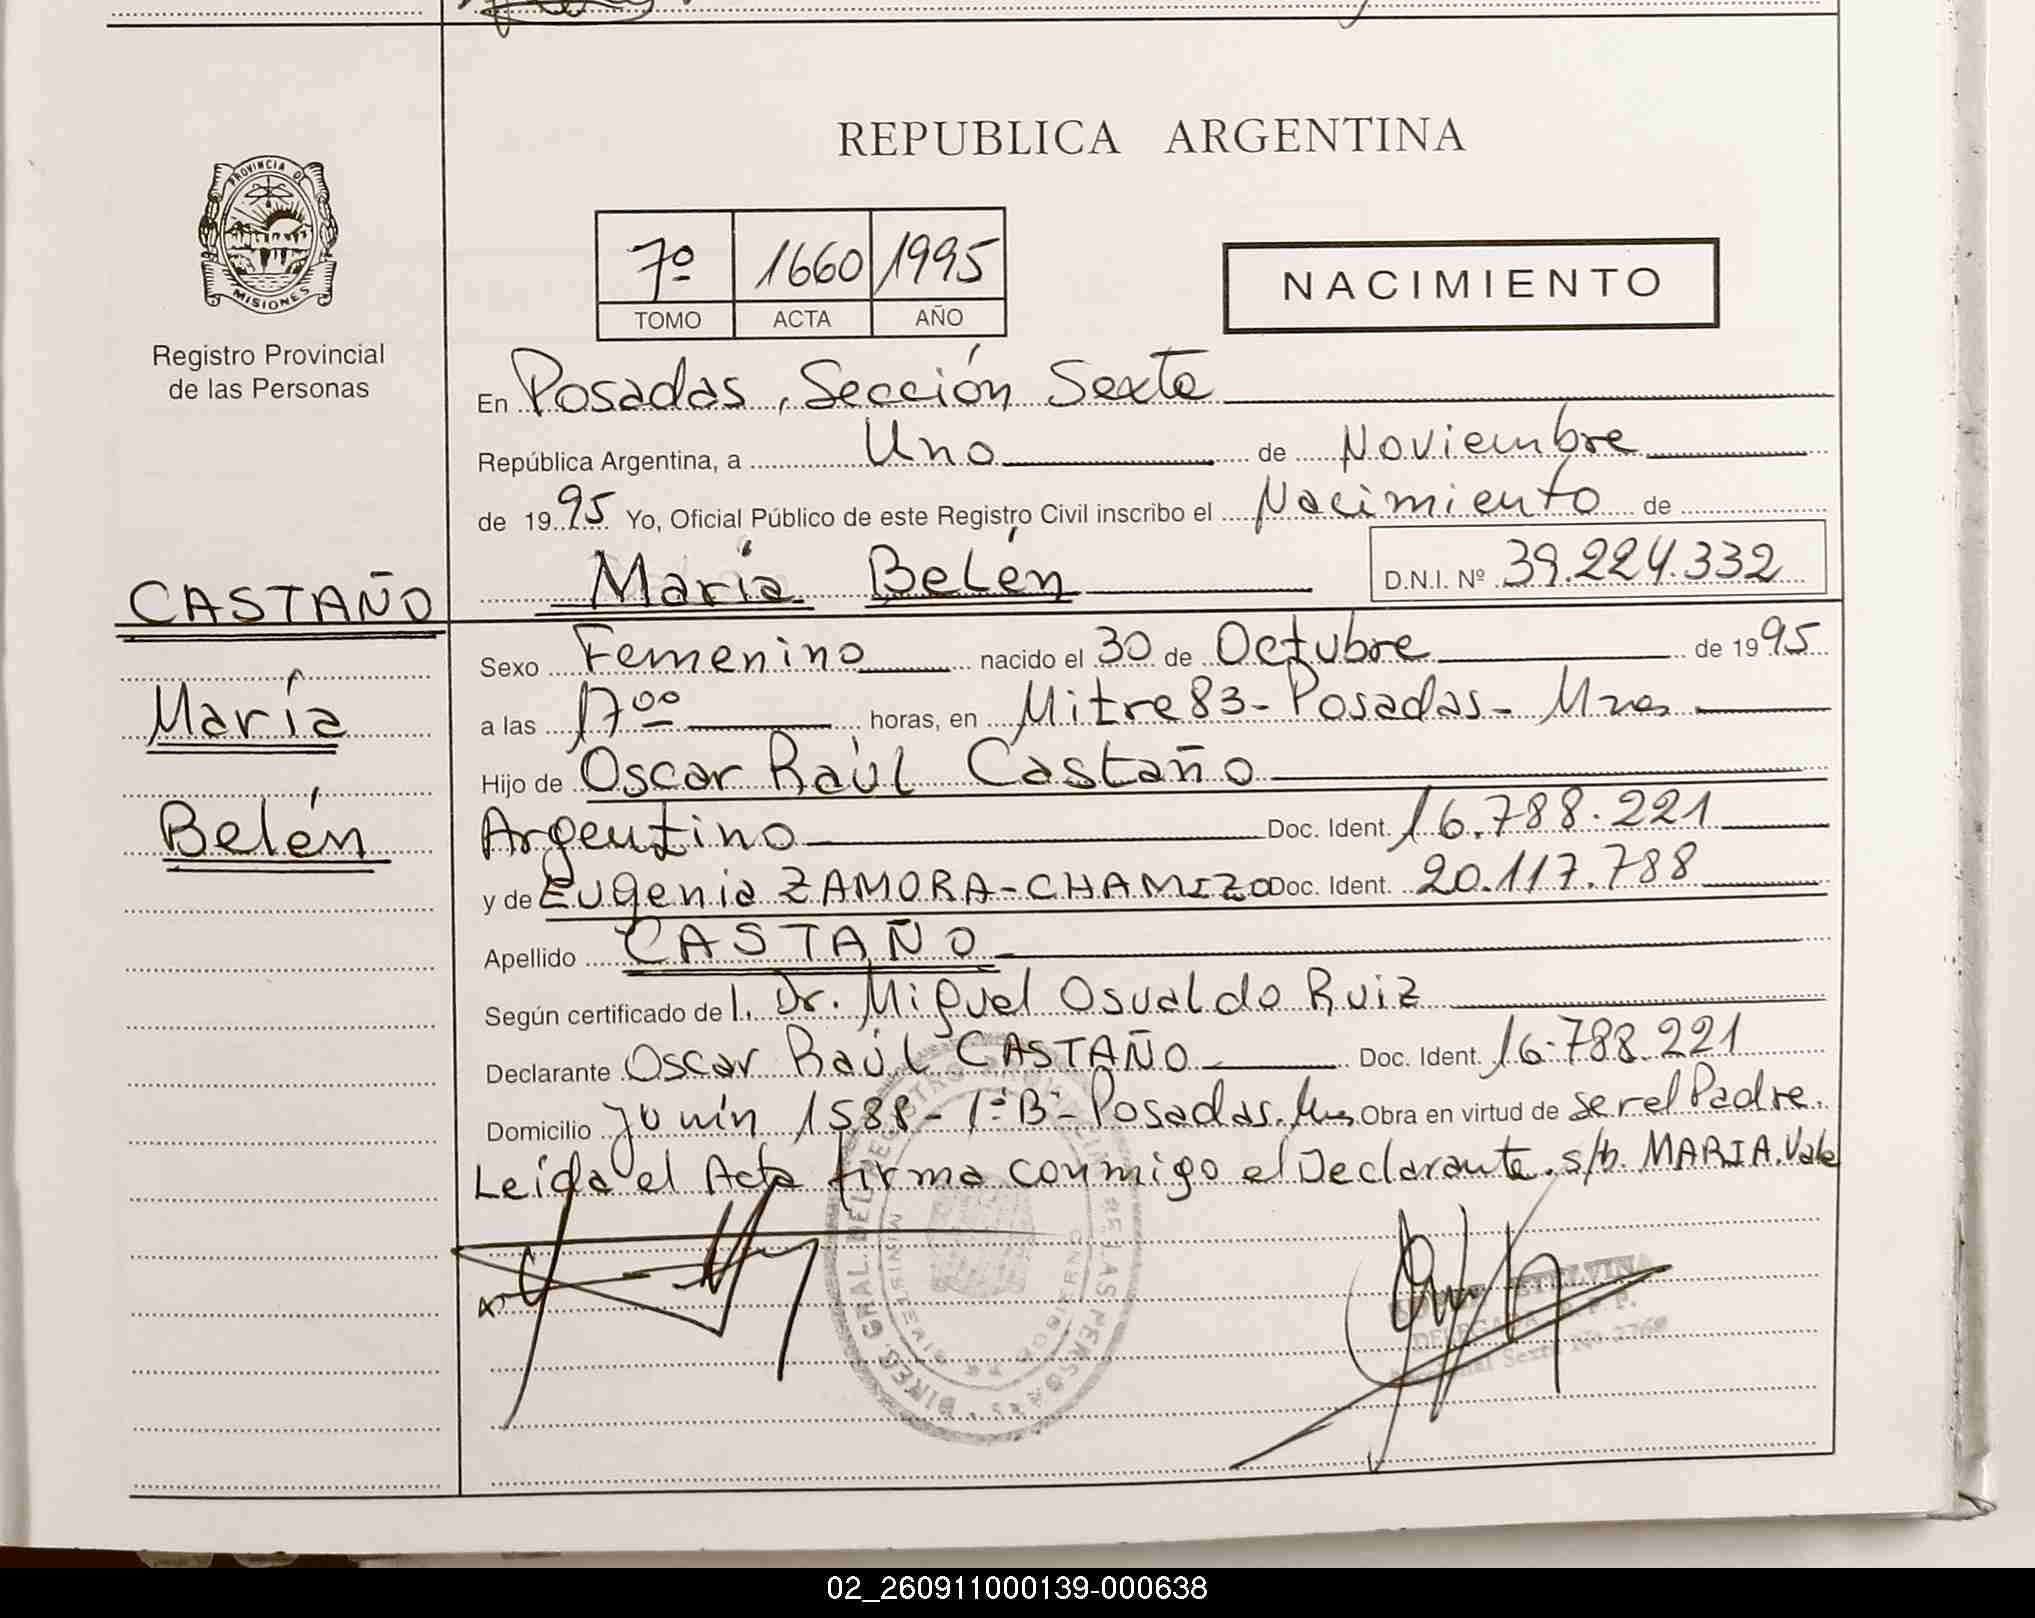 REPUBLICA ARGENTINA
PROVINCIA DE
MISIONES
Registro Provincial
de las Personas
7º 1660 1995
TOMO ACTA AÑO
NACIMIENTO
En Posadas, Sección Sexta
República Argentina, a Uno de Noviembre
de 1995 Yo, Oficial Público de este Registro Civil inscribo el Nacimiento de
María Belén D.N.I. Nº 39.224.332
CASTAÑO
María
Belén
Sexo Femenino nacido el 30 de Octubre de 1995
a las 17⁰⁰ horas, en Mitre 83- Posadas- Mnes
Hijo de Oscar Raúl Castaño
Argentino Doc. Ident. 16.788.221
y de Eugenia ZAMORA-CHAMIZO Doc. Ident. 20.117.788
Apellido CASTAÑO
Según certificado de l. Dr. Miguel Osvaldo Ruiz
Declarante Oscar Raúl CASTAÑO Doc. Ident. 16.788.221
Domicilio Junín 1588- 1º"B"- Posadas. Mnes Obra en virtud de ser el Padre.
Leída el Acta firma conmigo el Declarante. s/b. MARIA. Vale
02_260911000139-000638